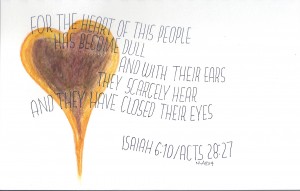 FOR THE HEART OF THIS PEOPLE
HAS BECOME DULL
AND WITH THEIR EARS
THEY SCARCELY HEAR
AND THEY HAVE CLOSED THEIR EYES
ISAIAH 6:10/ACTS 28:27